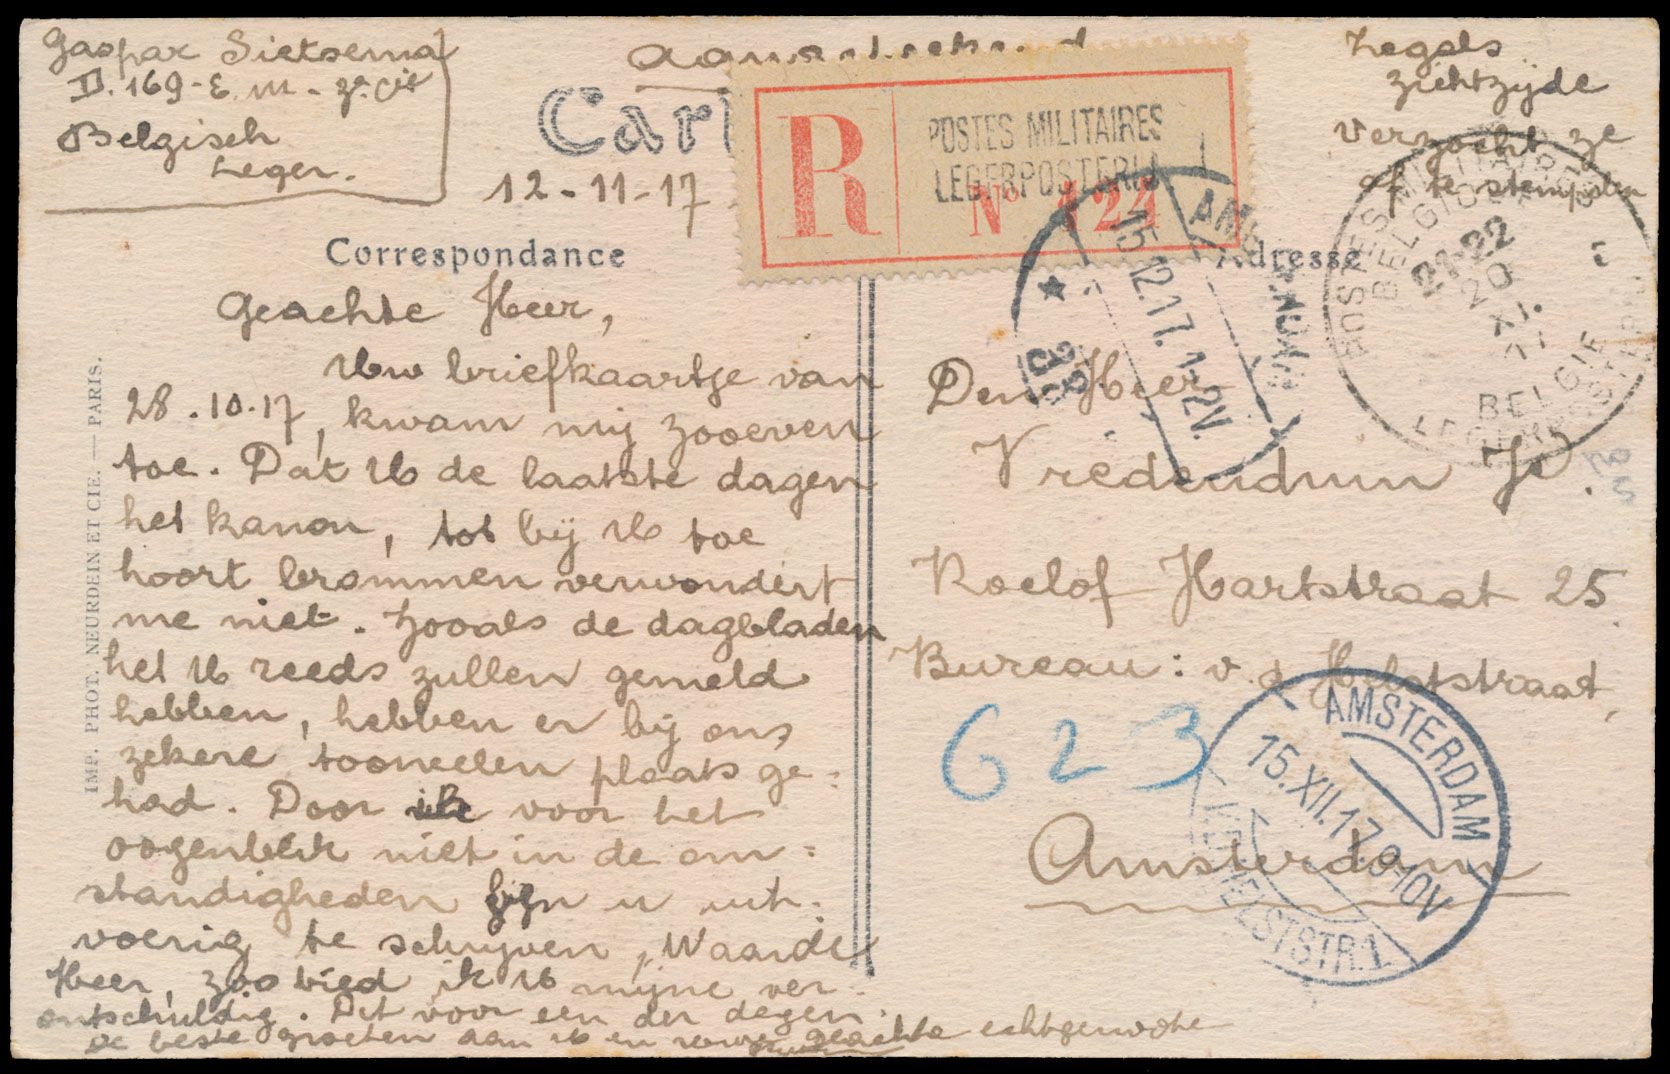 Gaspar Sietsema
D. 169 - E. M.
Belgisch
Leger.
Aangeteekend
Zegels
zichtzijde
verzocht ze
af te stempelen
Car
12-11-17
R
POSTES MILITAIRES
LEGERPOSTERIJ
No 124
Correspondance
Adresse
Geachte Heer,
Uw briefkaartje van
28.10.17, kwam mij zooeven
toe. Dat U de laatste dagen
het kanon, tot bij U toe
hoort brommen verwondert
me niet. Zooals de dagbladen
het U reeds zullen gemeld
hebben, hebben er bij ons
zekere tooneelen plaats ge-
had. Door voor het
oogenblik niet in de om-
standigheden zijn u uit-
voerig te schrijven, Waarde
Heer, zoo bied ik U mijne ver-
ontschuldig. Dit voor een der dagen.
De beste groeten aan U en uwe geachte echtgenoote
IMP. PHOT. NEURDEIN ET CIE. — PARIS.
Den Heer
Vredenduin Jr.
Roelof Hartstraat 25
Bureau: v.d. Helststraat,
Amsterdam
623
AMS
15.12.17. 1-2V.
POSTES MILITAIRES
BELGIQUE
21-22
20
XI.
17
BELGIE
LEGERPOSTERIJ
AMSTERDAM
15.XII.17. 9-10V
V.D. HELSTSTR.1.